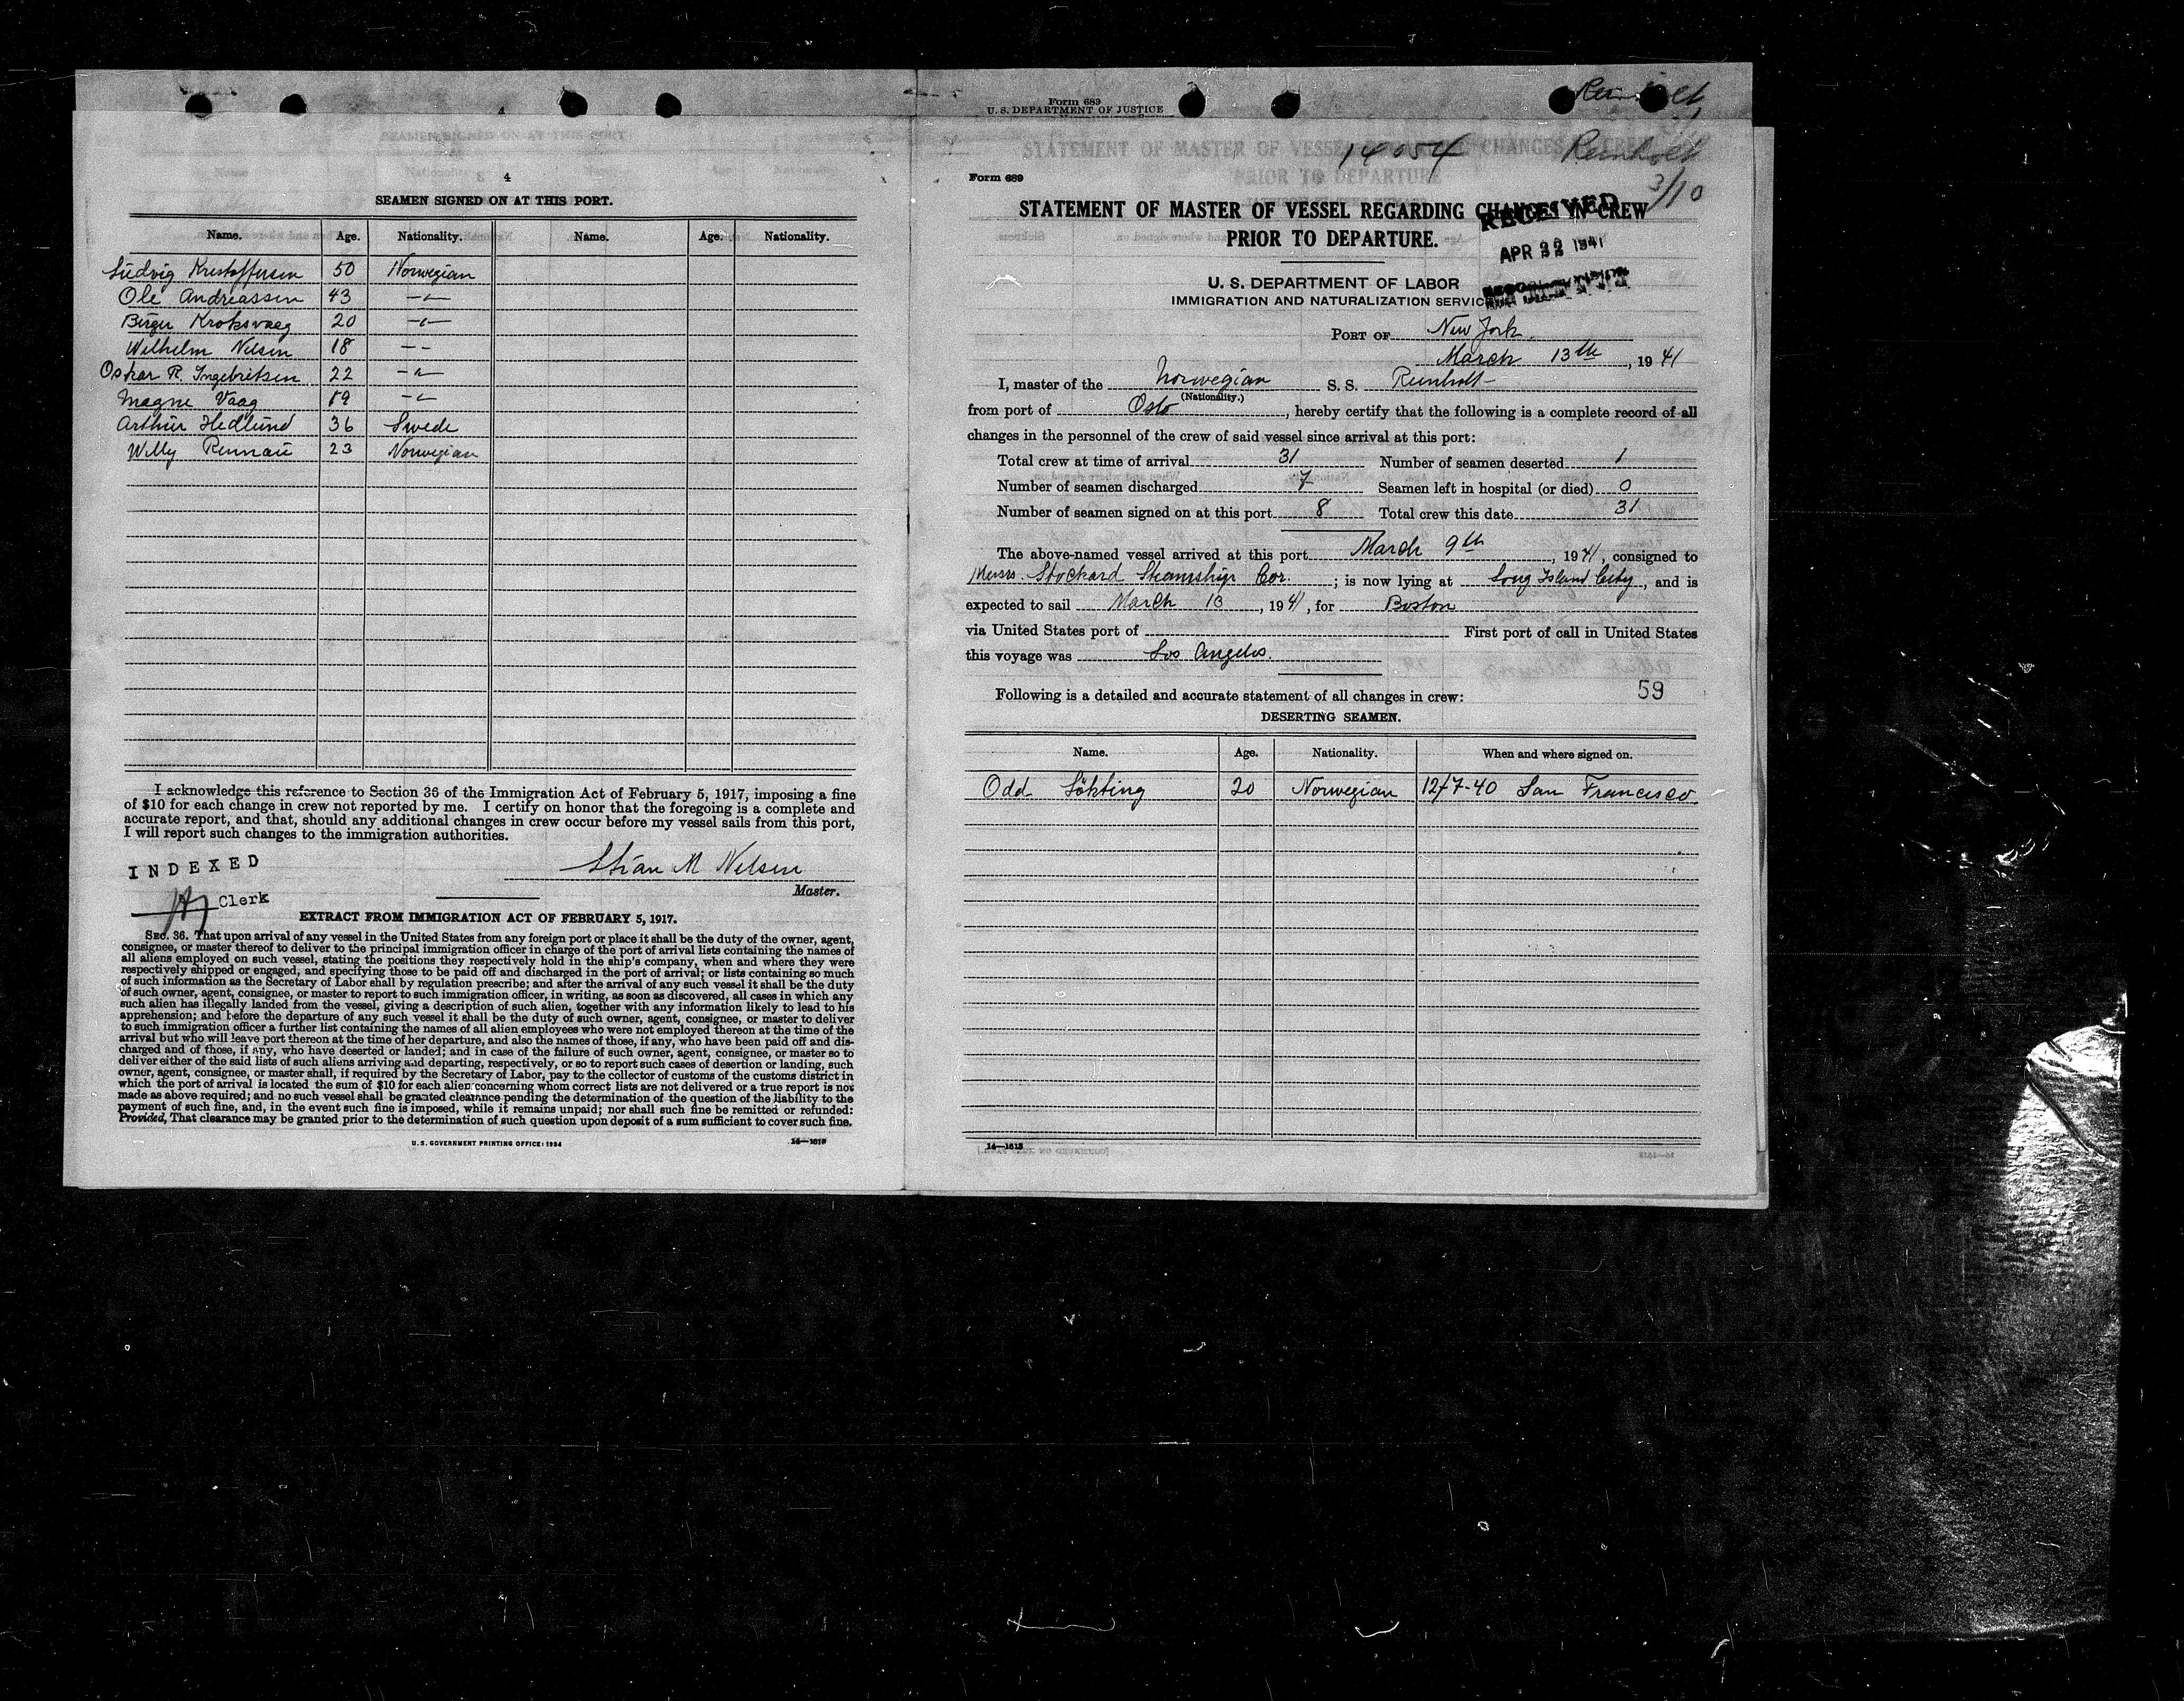 4
SEAMEN SIGNED ON AT THIS PORT.
Name. Age. Nationality. Name. Age. Nationality.
Ludvig Kristoffersen 50 Norwegian
Ole Andreassen 43 -"-
Birger Kroksvaag 20 -"-
Wilhelm Nilsen 18 - -
Oskar R. Ingebritsen 22 -"-
Magne Vaag 19 -"-
Arthur Hedlund 36 Swede
Willy Rennau 23 Norwegian
I acknowledge this reference to Section 36 of the Immigration Act of February 5, 1917, imposing a fine
of $10 for each change in crew not reported by me. I certify on honor that the foregoing is a complete and
accurate report, and that, should any additional changes in crew occur before my vessel sails from this port,
I will report such changes to the immigration authorities.
INDEXED
Clerk
Stian M Nelsen
Master.
EXTRACT FROM IMMIGRATION ACT OF FEBRUARY 5, 1917.
SEC. 36. That upon arrival of any vessel in the United States from any foreign port or place it shall be the duty of the owner, agent,
consignee, or master thereof to deliver to the principal immigration officer in charge of the port of arrival lists containing the names of
all aliens employed on such vessel, stating the positions they respectively hold in the ship's company, when and where they were
respectively shipped or engaged, and specifying those to be paid off and discharged in the port of arrival; or lists containing so much
of such information as the Secretary of Labor shall by regulation prescribe; and after the arrival of any such vessel it shall be the duty
of such owner, agent, consignee, or master to report to such immigration officer, in writing, as soon as discovered, all cases in which any
such alien has illegally landed from the vessel, giving a description of such alien, together with any information likely to lead to his
apprehension; and before the departure of any such vessel it shall be the duty of such owner, agent, consignee, or master to deliver
to such immigration officer a further list containing the names of all alien employees who were not employed thereon at the time of the
arrival but who will leave port thereon at the time of her departure, and also the names of those, if any, who have been paid off and dis-
charged and of those, if any, who have deserted or landed; and in case of the failure of such owner, agent, consignee, or master so to
deliver either of the said lists of such aliens arriving and departing, respectively, or so to report such cases of desertion or landing, such
owner, agent, consignee, or master shall, if required by the Secretary of Labor, pay to the collector of customs of the customs district in
which the port of arrival is located the sum of $10 for each alien concerning whom correct lists are not delivered or a true report is not
made as above required; and no such vessel shall be granted clearance pending the determination of the question of the liability to the
payment of such fine, and, in the event such fine is imposed, while it remains unpaid; nor shall such fine be remitted or refunded:
Provided, That clearance may be granted prior to the determination of such question upon deposit of a sum sufficient to cover such fine.
U. S. GOVERNMENT PRINTING OFFICE: 1934 14—1618
Form 689
U. S. DEPARTMENT OF JUSTICE
14054
Reinholt
3/10
Form 689
STATEMENT OF MASTER OF VESSEL REGARDING CHANGES IN CREW
PRIOR TO DEPARTURE.
RECEIVED
APR 22 1941
U. S. DEPARTMENT OF LABOR
IMMIGRATION AND NATURALIZATION SERVICE
PORT OF New York.
March 13th, 1941
I, master of the Norwegian S. S. Reinholt
(Nationality.)
from port of Oslo, hereby certify that the following is a complete record of all
changes in the personnel of the crew of said vessel since arrival at this port:
Total crew at time of arrival 31 Number of seamen deserted 1
Number of seamen discharged 7 Seamen left in hospital (or died) 0
Number of seamen signed on at this port 8 Total crew this date 31
The above-named vessel arrived at this port March 9th, 1941, consigned to
Messrs. Stockard Steamship Cor.; is now lying at Long Island City, and is
expected to sail March 13, 1941, for Boston
via United States port of First port of call in United States
this voyage was Los Angeles.
Following is a detailed and accurate statement of all changes in crew: 59
DESERTING SEAMEN.
Name. Age. Nationality. When and where signed on.
Odd Sökting 20 Norwegian 12/7-40 San Francisco.
14—1618